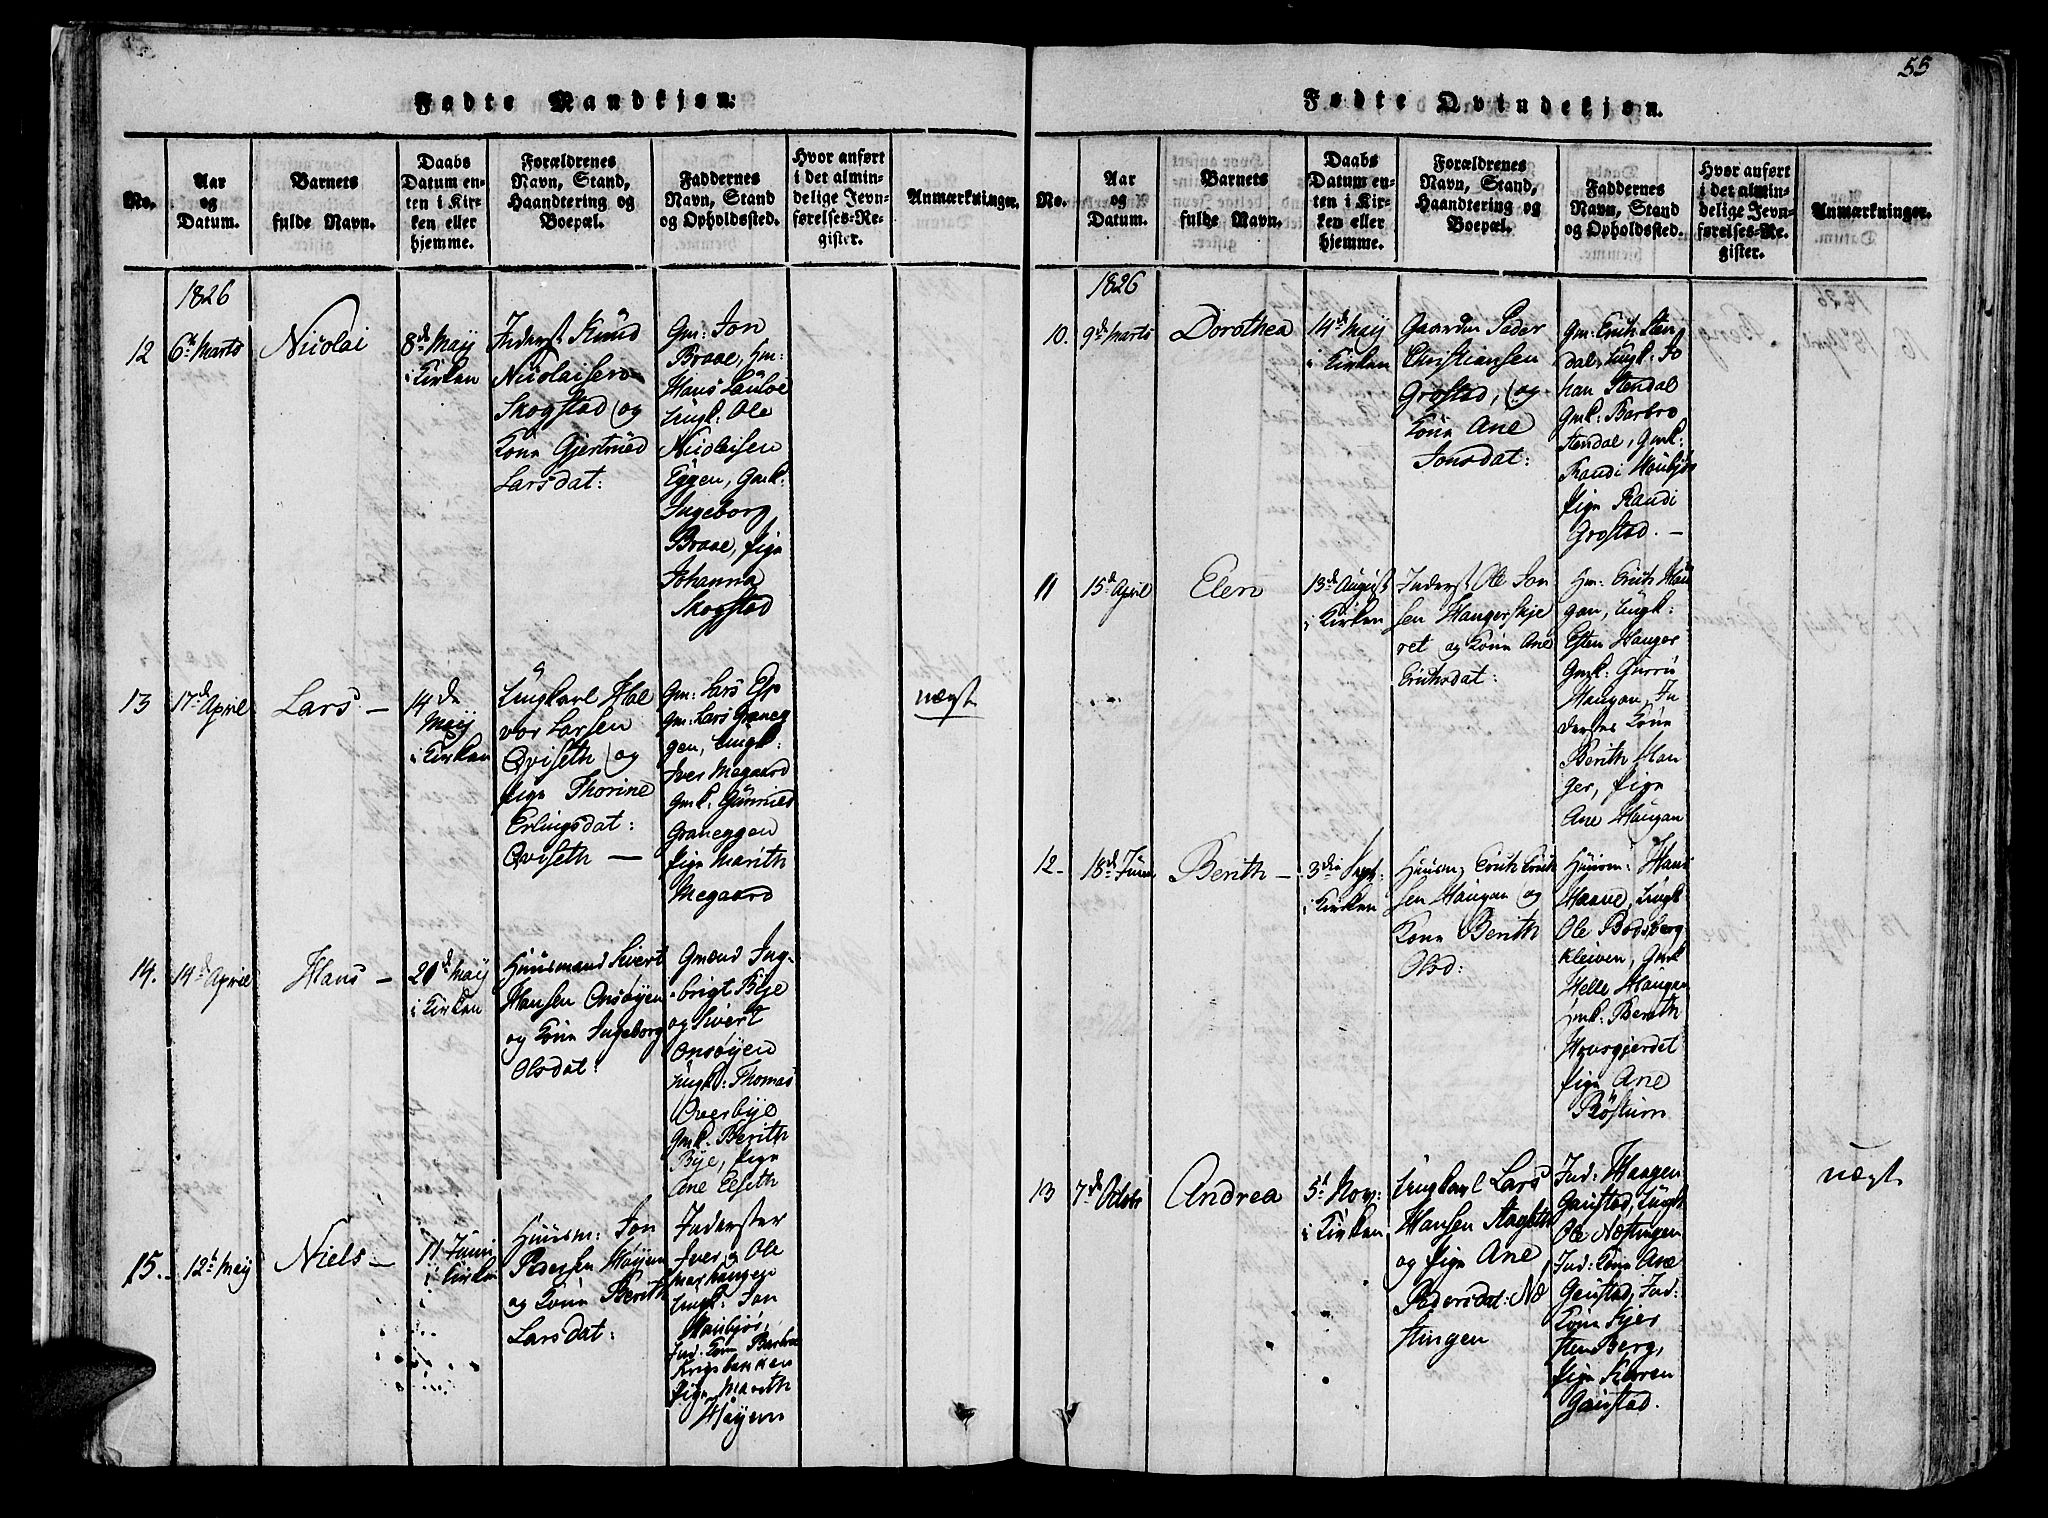 55
Fødte Mandkjøn.
No.
Aar
og
Datum.
Barnets
fulde Navn.
Daabs
Datum en-
ten i Kir-
ken eller
hjemme.
Forældrenes
Navn, Stand,
Haandtering og
Boepæl.
Faddernes
Navn, Stand
og Opholdssted.
Hvor anført
i det almin-
delige Jevn-
førelses-Re-
gister.
Anmærkninger.
1826
12
6te Marts
Nicolai
8de Maÿ
i Kirken
Inderst Knud
Nicolaisen
Skogstad og
Kone Gjertrud
Larsdat:
Gm: Jon
Braae, Hm:
Hans
Ungk: Ole
Nicolaisen
Eggen, Gmk:
Ingeborg
Braae, Pige
Johanna
Skogstad
13
17de April
Lars –
14de
Maÿ
i Kirken
Ungkarl Hal
vor Larsen
Qviseth og
Pige Thorine
Erlingsdat:
Qviseth —
Gm: Lars Esp
Gm: Lars Graneg
gen, Ungk:
Iver Megaard
Gmk: Gunnild
Graneggen
Pige Marith
Megaard
uægt
14.
14de April
Hans –
21de Maÿ
i Kirken
Huusmand Sivert
Hansen Onsøyen
og Kone Ingeborg
Olsdat:
Gmænd Ing-
brigt Bÿe
og Sivert
Onsøyen
Ungk: Thomas
Overbÿe
Gmk. Berith
Bÿe, Pige
Ane Elseth
15.
12te Maÿ
Niels –
11 Junii
i Kirken
Huusm: Jon
Pedersen Høyem
og Kone Berith
Larsdat:
Inderster
Iver, Ole
Ungk: Jon
Haubjør,
Ind. Kone Barbro
Krigsbakken
Pige Marith
Høyem
Fødte Qvindekjøn.
No.
Aar
og
Datum.
Barnets
fulde Navn.
Daabs
Datum en-
ten i Kir-
ken eller
hjemme.
Forældrenes
Navn, Stand,
Haandtering og
Boepæl.
Faddernes
Navn, Stand
og Opholdssted.
Hvor anført
i det almin-
delige Jevn-
førelses-Re-
gister.
Anmærkninger.
1826
10.
9de Marts
Dorothea
14de Maÿ
i Kirken
Gaardm Peder
Christiansen
Grøstad, og
Kone Ane
Jonsdat:
Gm: Erich Sten
dal, Ungk: Jo
han Stendal
Gmk: Barbro
Stendal, Gmk:
Randi Houbjør
Pige Randi
Grøstad. –
11
15de April
Elen
13de August
i Kirken
Inderst Ole Jon
sen Hangerskje
ret og Kone Ane
Erichsdat:
Hm: Erich Hau
gan, Ungk:
Esten Hanger
Gmk: Gurru
Haugan, In
derstes Kone
Berith Han
ger, Pige
Ane Haugan
12.
18de Junii
Berith –
3die Sept:
i Kirken
Huusm, Erich Erich
sen Haugan og
Kone Berith
Olsd:
Huusm: Hans
Haave, Ungk
Ole Bodsberg
kleiven, Gmk
Helle Haugan
Gmk: Berith
Hovsgjerdet
Pige Ane
Røstum
13
7de Octobr
Andrea
5te Nov:
i Kirken
Ungkarl Lars
Hansen Slagseth
og Pige Ane
Pedersdat: Næ
stingen
Ind: Haagen
Gaustad, Ungk
Ole Næstingen
Ind: Kone Ane
Gaustad, Ind:
Kone Kjer
sten Berg,
Pige Karen
Gaustad.
uægt